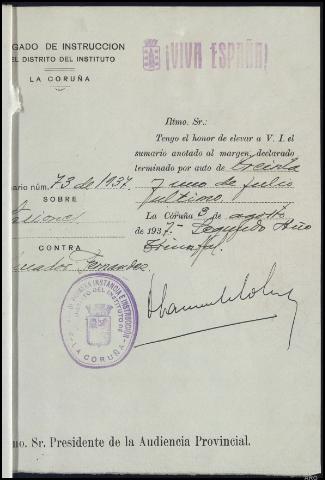 ¡VIVA ESPAÑA!
GADO DE INSTRUCCION
EL DISTRITO DEL INSTITUTO
LA CORUÑA
Iltmo. Sr.:
Tengo el honor de elevar a V. I. el
sumario anotado al margen, declarado
terminado por auto de treinta
y uno de julio
ultimo.
ario núm. 73 de 1937.
SOBRE
La Coruña 3 de agosto
de 1937.- Segundo Año
Triunfal.
CONTRA
Fernandez
INSTANCIA E INSTRUCCIÓN
LA CORUÑA
mo. Sr. Presidente de la Audiencia Provincial.